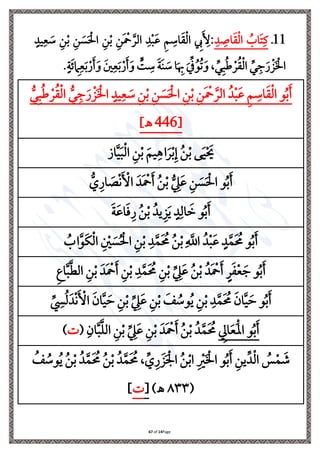 11. كِتَابُ الْقَاصِدِ: لِأَبِي الْقَاسِمِ عَبْدِ الرَّحْمَنِ بْنِ الْحَسَنِ بْنِ سَعِيدٍ
الْخَزْرَجِيِّ الْقُرْطُبِيِّ، وَتُوُفِّيَ بِهَا سَنَةَ سِتٍّ وَأَرْبَعِينَ وَأَرْبَعِمِائَةٍ.
أَبُو الْقَاسِمِ عَبْدُ الرَّحْمَنِ بْنِ الْحَسَنِ بْنِ سَعِيدٍ الْخَزْرَجِيُّ الْقُرْطُبِيُّ
[446 هـ]
يَحْيَى بْنُ إِبْرَاهِيمَ بْنِ الْبَيَّازِ
أَبُو الْحَسَنِ عَلِيُّ بْنُ أَحْمَدَ الْأَنْصَارِيُّ
أَبُو خَالِدٍ يَزِيدُ بْنُ رِفَاعَةَ
أَبُو مُحَمَّدٍ عَبْدُ اللهِ بْنُ مُحَمَّدِ بْنِ الْحُسَيْنِ الْكَوَّابُ
أَبُو جَعْفَرٍ أَحْمَدُ بْنُ عَلِيِّ بْنِ مُحَمَّدِ بْنِ أَحْمَدَ بْنِ الطَّبَّاعِ
أَبُو حَيَّانَ مُحَمَّدِ بْنِ يُوسُفَ بْنِ عَلِيِّ بْنِ حَيَّانَ الْأَنْدَلُسِيِّ
أَبُو الْمَعَالِي مُحَمَّدُ بْنُ أَحْمَدَ بْنِ عَلِيِّ بْنِ اللَّبَّانِ (ت)
شَمْسُ الدِّينِ أَبُو الْخَيْرِ ابْنُ الْجَزَرِيِّ، مُحَمَّدُ بْنُ مُحَمَّدُ بْنُ يُوسُفُ
(٨٣٣ هـ) [ت]
67 of 14Page